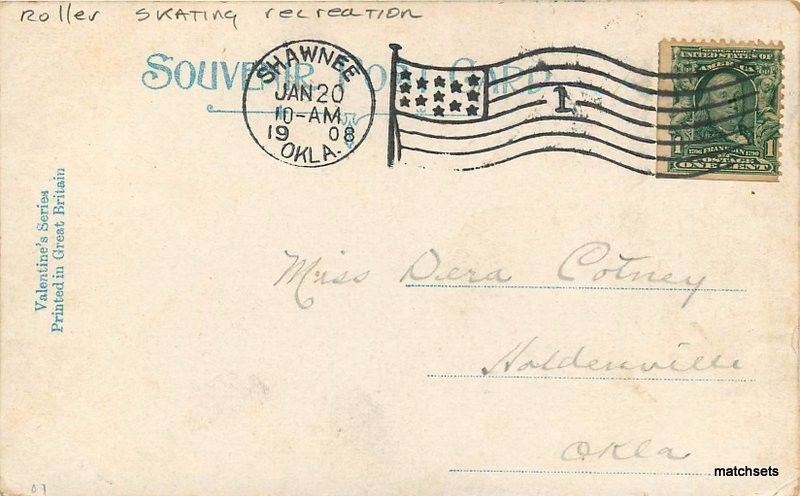 Roller SKATING recreation
SOUVENIR POST CARD
SHAWNEE
JAN 20
10-AM
19 08
OKLA.
1
SERIES 1902
UNITED STATES OF
AMERICA
1 FRANKLIN 1
POSTAGE
ONE CENT
Valentine's Series
Printed in Great Britain
Miss Dera Cotney
Holdenville
Okla
07
matchsets